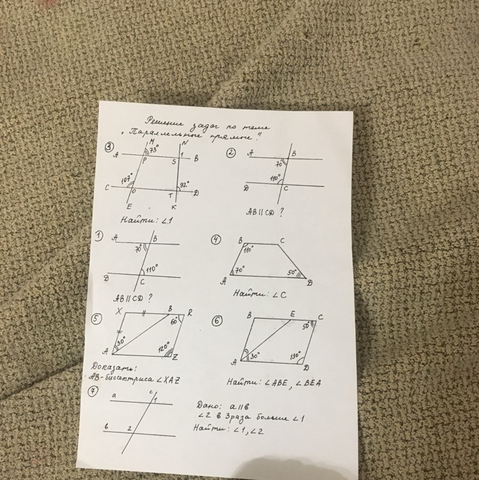 Решение задач по теме
"Параллельные прямые".
③ M N
A 73° 1 B
P S
107° 92°
C O T D
E K
Найти: ∠1
② A B
70°
110°
D C
AB || CD ?
① A B
70°
110°
D C
AB || CD ?
④ B C
110°
A 70° 50° D
Найти: ∠C
⑤ X B R
60°
30° 120°
A Z
Доказать:
AB-биссектриса ∠XAZ
⑥ B E C
50°
A 30° 130° D
Найти: ∠ABE, ∠BEA
⑦ a c 1
в 2
Дано: a || в
∠2 в 3 раза больше ∠1
Найти: ∠1, ∠2